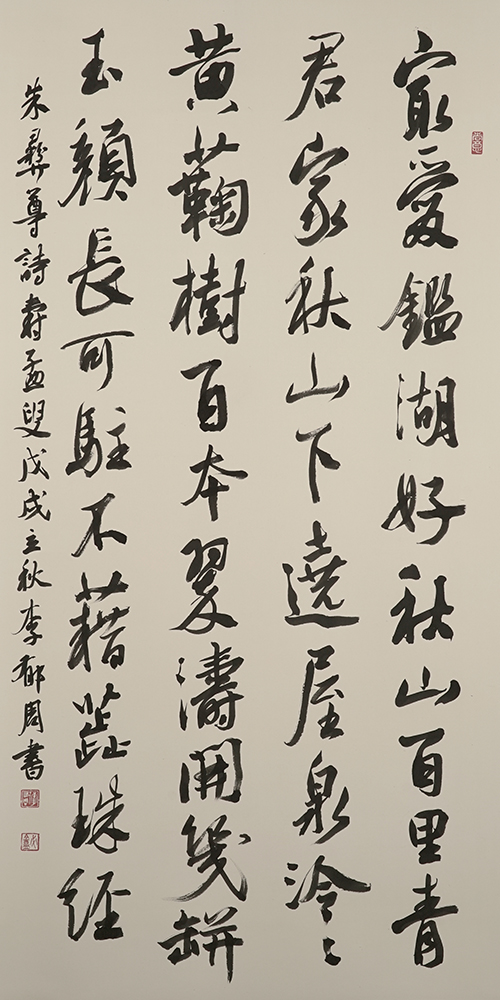 㝡愛鑑湖好秋山百里青
君家秋山下遶屋泉泠〻
黃蘜樹百本翠濤開幾缾
玉顏長可駐不藉蕋珠經
朱彝尊詩壽孟叟戊戌立秋李郁周書